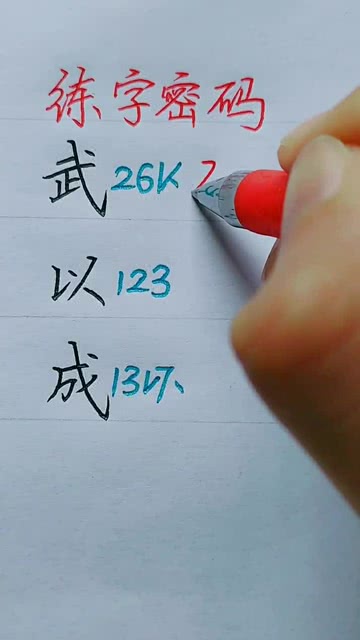 练字密码
武 26K
以 123
成 13